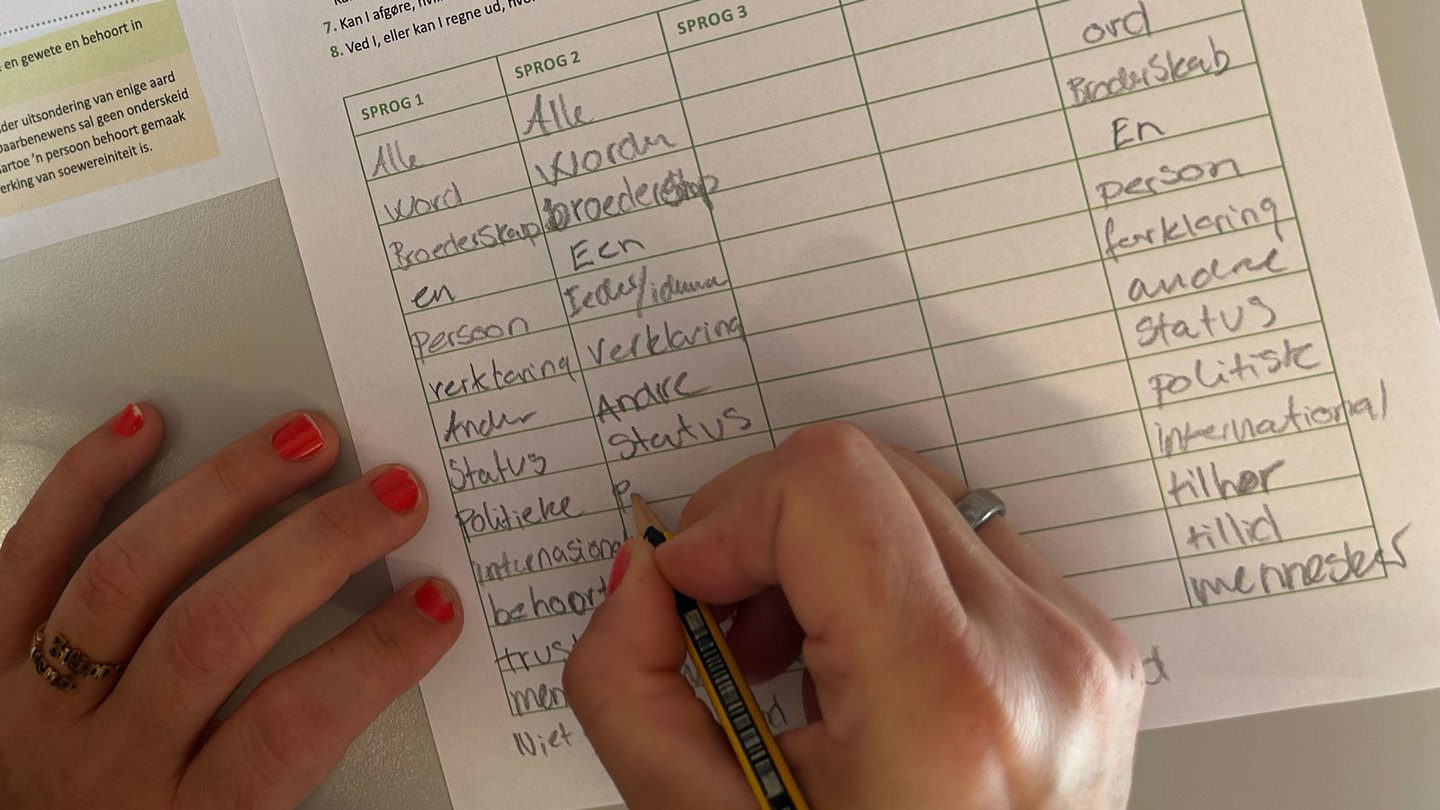 en gewete en behoort in
der uitsondering van enige aard
aarbenewens sal geen onderskeid
artoe 'n persoon behoort gemaak
erking van soewereiniteit is.
7. Kan I afgøre,
8. Ved I, eller kan I regne ud,
SPROG 1 SPROG 2 SPROG 3
Alle Alle ord
word worden Broderskab
Broederskap broederschap En
en Een person
persoon Iedes/ forklaring
verklaring verklaring andre
Ander Andre status
Status Status politiske
Politieke P international
internasional tilhør
behoort tillid
trus menneskers
men
Niet